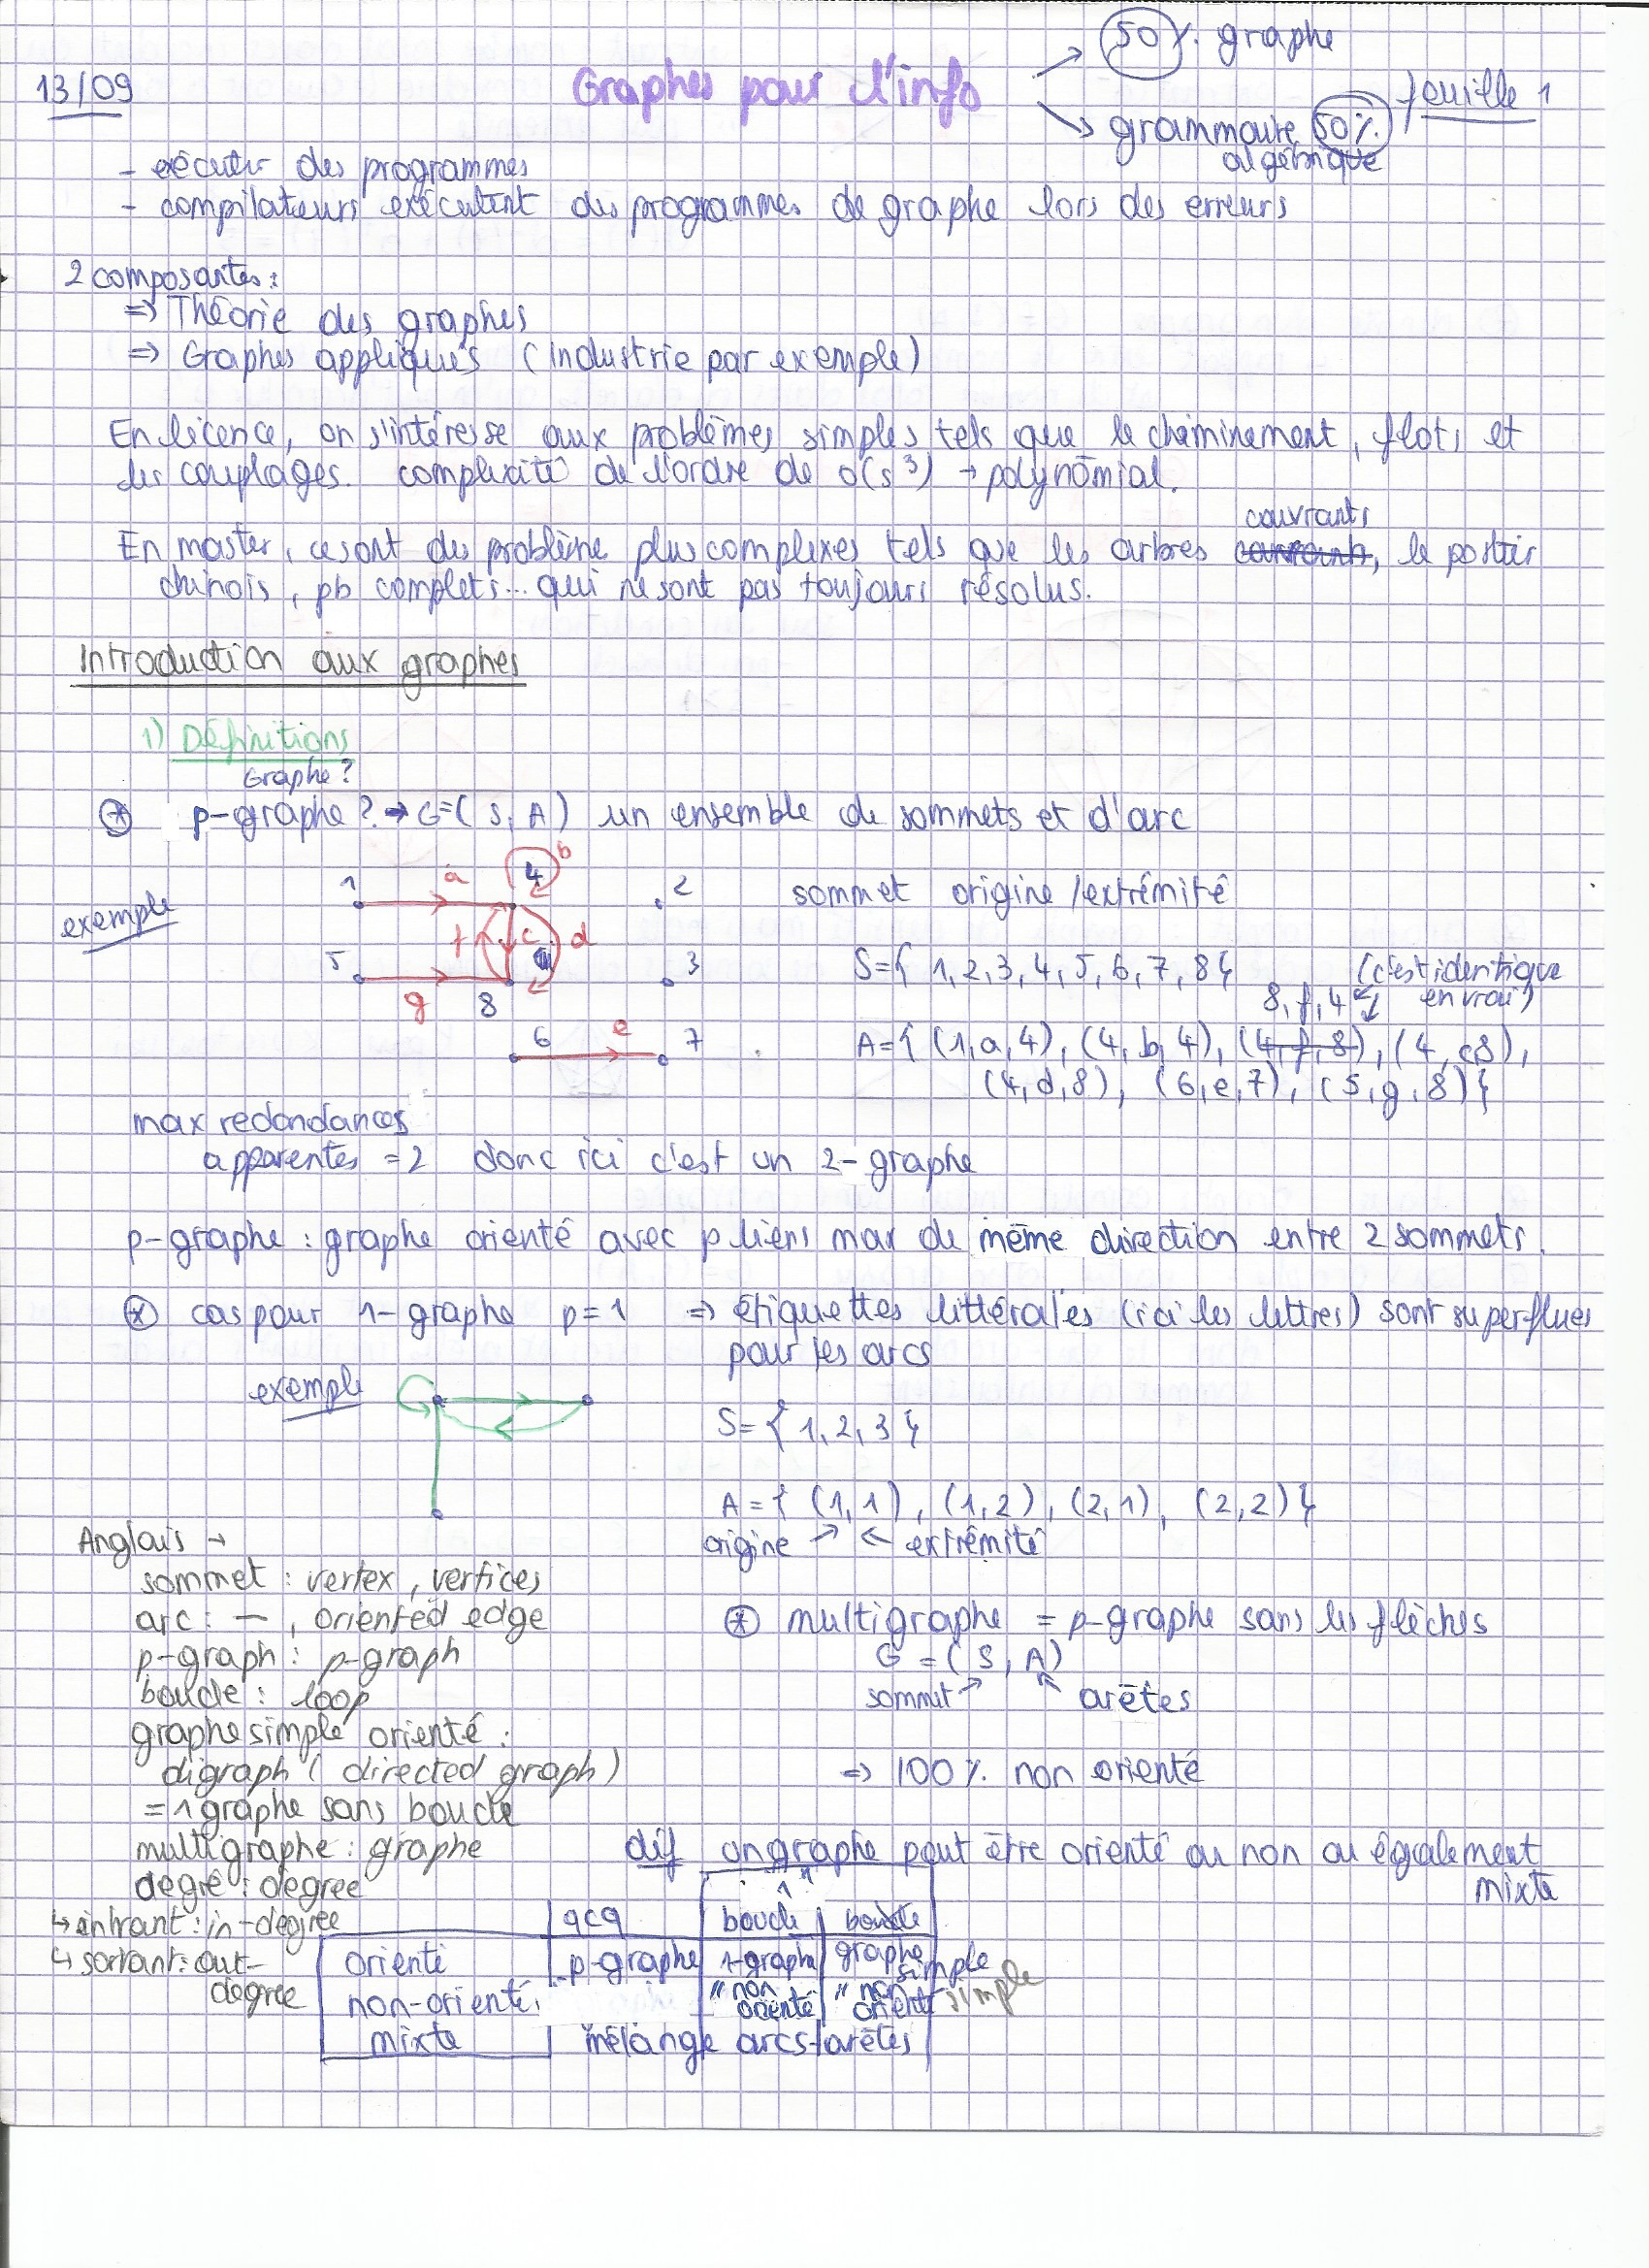 50% graphe
13/09
Graphes pour l'info
feuille 1
grammaire 50%
algébrique
- exécuter des programmes
- compilateurs exécutent des programmes de graphe lors des erreurs
2 composantes :
=> Théorie des graphes
=> Graphes appliqués (industrie par exemple)
En licence, on s'intéresse aux problèmes simples tels que le cheminement, flots et
les couplages. complexité de l'ordre de o(s³) → polynômial.
couvrants
En master, ce sont des problème plus complexes tels que les arbres , le postier
chinois, pb complets... qui ne sont pas toujours résolus.
Introduction aux graphes
1) Définitions
Graphe ?
* p-graphe ? → G=(S, A) un ensemble de sommets et d'arc
exemple
1 a 4 b 2
f c d
5 g 8 3
6 e 7
sommet origine / extrémité
S={ 1, 2, 3, 4, 5, 6, 7, 8 }
(c'est identique
8, f, 4 en vrai)
A={ (1, a, 4), (4, b, 4), (4, f, 8), (4, c, 8),
(4, d, 8), (6, e, 7), (5, g, 8) }
max redondances
apparentes = 2 donc ici c'est un 2-graphe
p-graphe : graphe orienté avec p liens max de même direction entre 2 sommets.
* cas pour 1-graphe p=1 => étiquettes littérales (ici les lettres) sont superflues
pour les arcs
exemple
S= { 1, 2, 3 }
A = { (1, 1), (1, 2), (2, 1), (2, 2) }
origine ↗ ↖ extrémité
Anglais →
sommet : vertex, vertices
arc : —, oriented edge
p-graph : p-graph
boucle : loop
graphe simple orienté :
digraph (directed graph)
= 1 graphe sans boucle
multigraphe : graphe
degré : degree
↳ entrant : in-degree
↳ sortant : out-
degree
* multigraphe = p-graphe sans les flèches
G = (S, A)
sommet ↗ ↖ arêtes
=> 100% non orienté
dif un graphe peut être orienté ou non ou également
mixte
"1"
qcq boucle boucle
orienté p-graphe 1-graphe graphe simple
non-orienté " non orienté " non orienté simple
mixte mélange arcs-arêtes